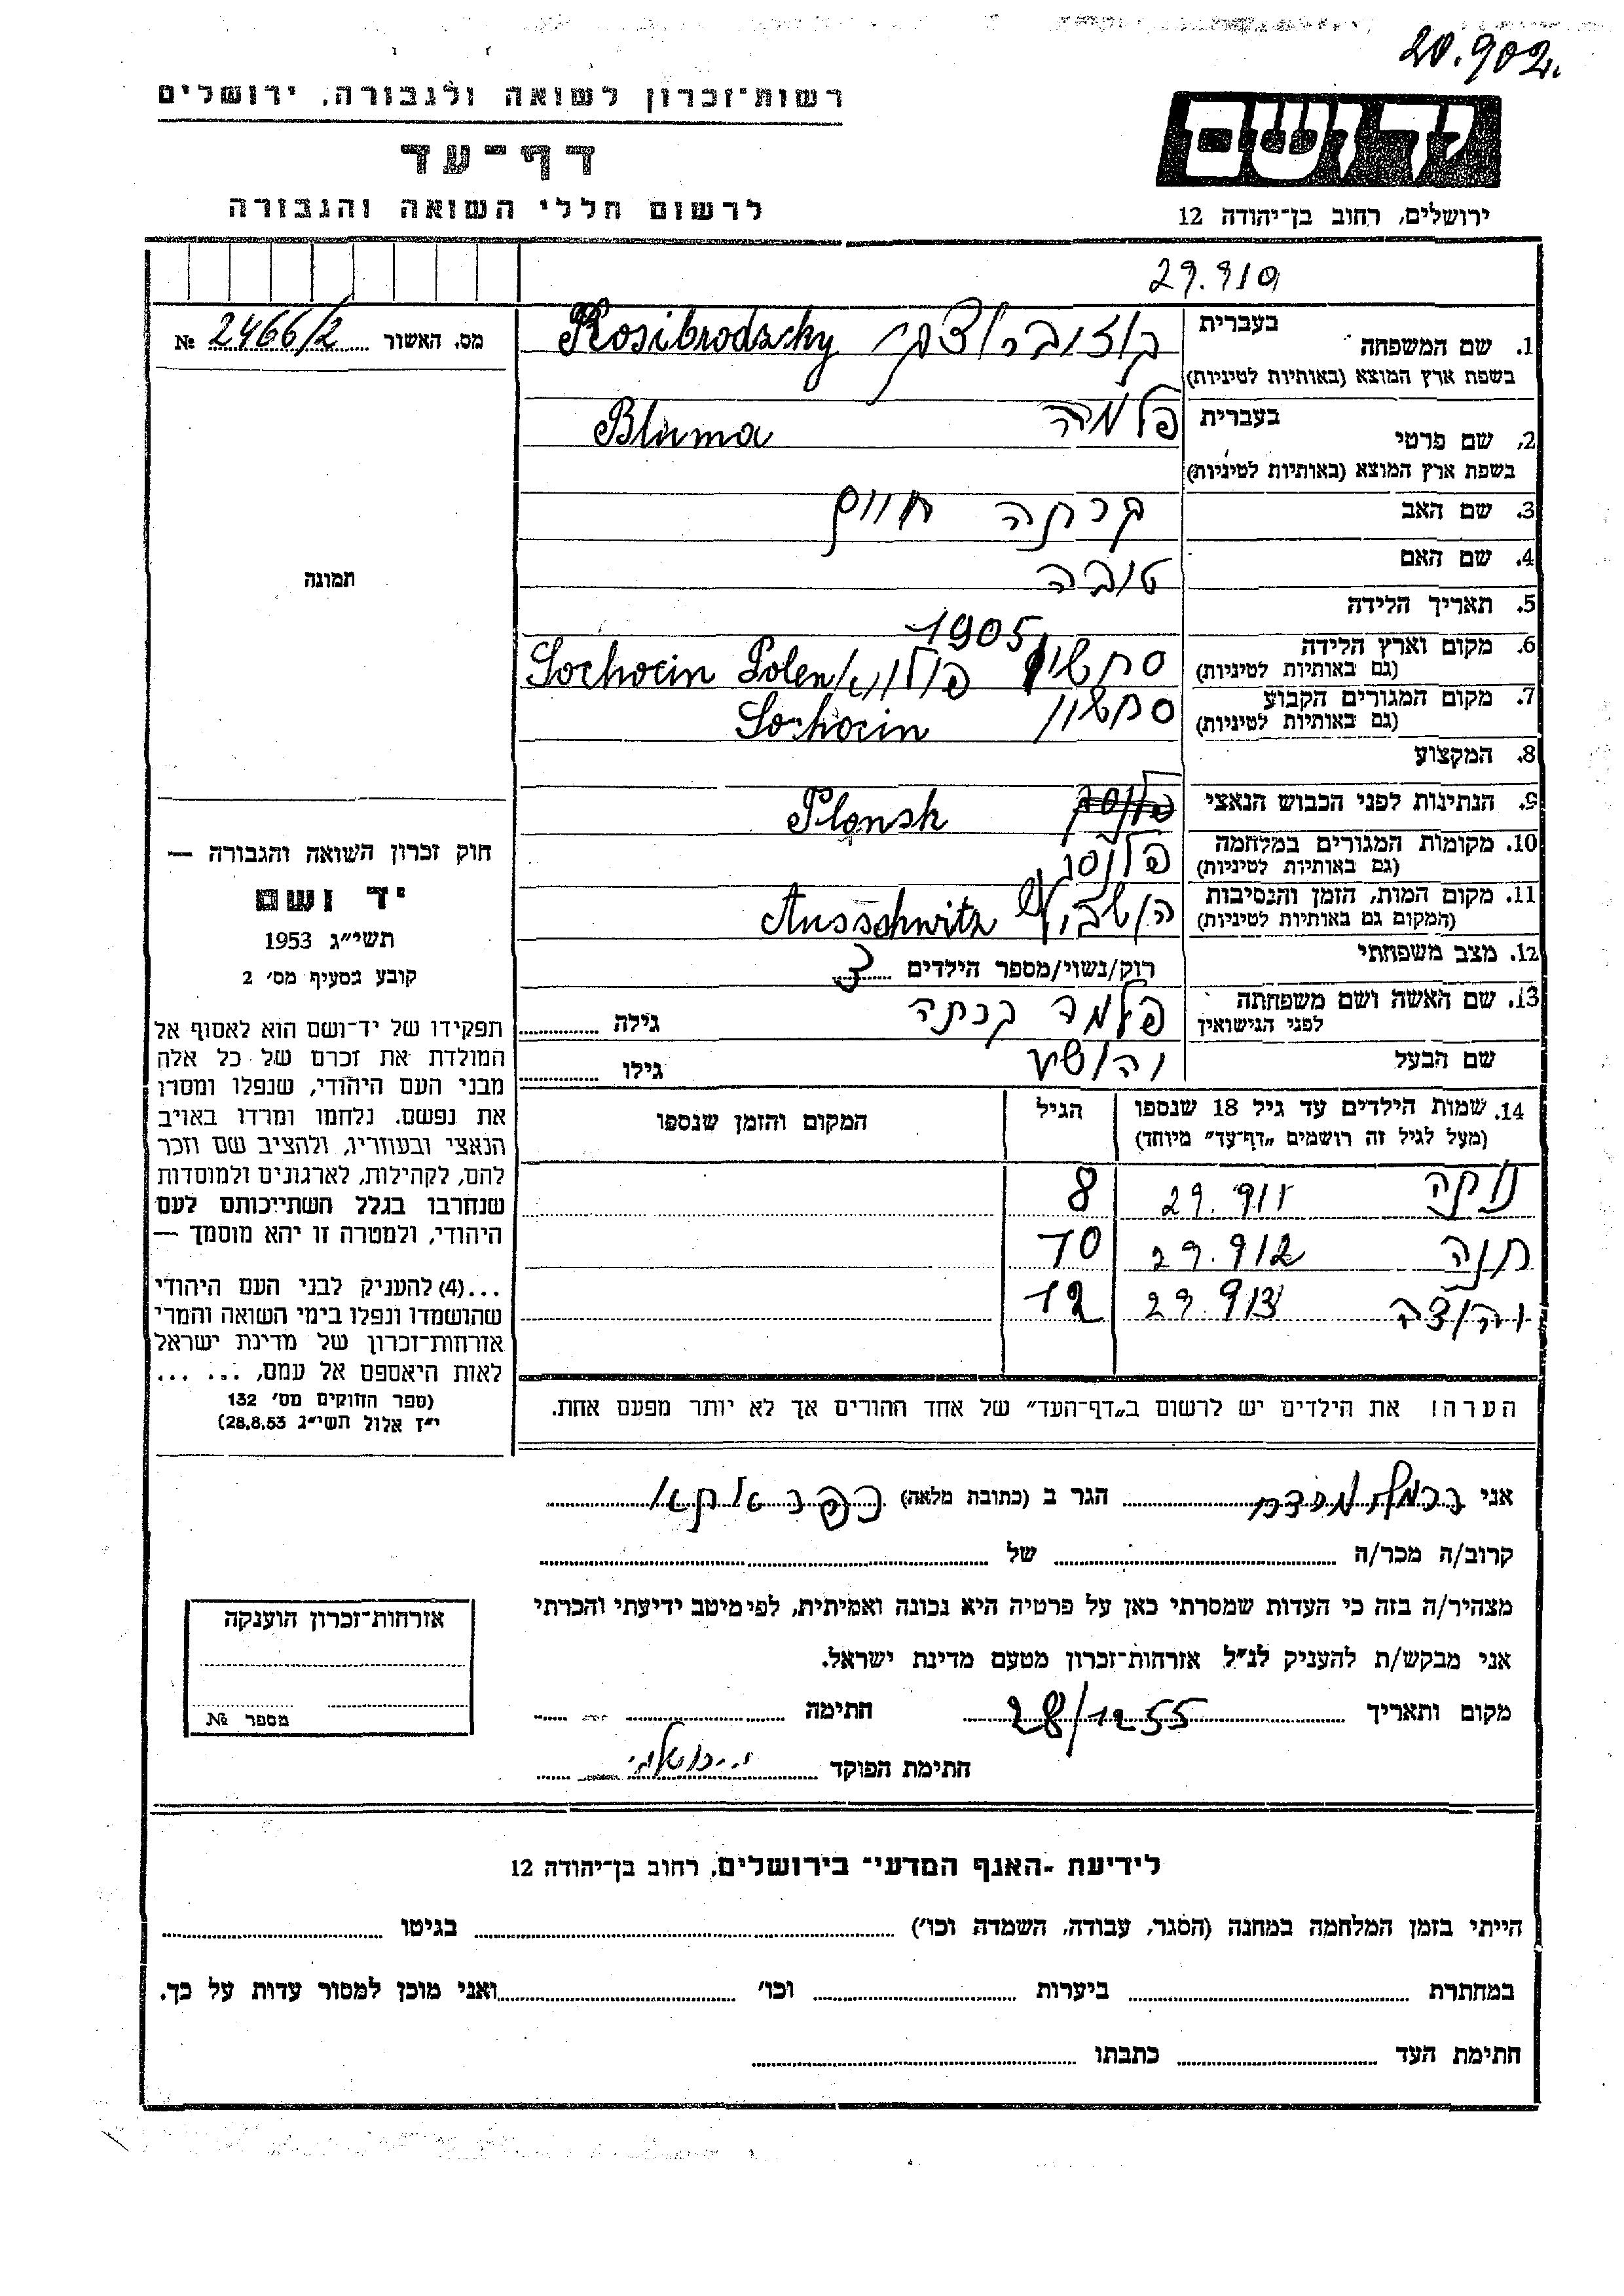 20.902.
רשות־זכרון לשואה ולגבורה, ירושלים
יד ושם
דף־עד
לרשום חללי השואה והגבורה
ירושלים, רחוב בן־יהודה 12
29.910
מס. האשור 2466/2 №
1. שם המשפחה בעברית Kosibrodzky
בשפת ארץ המוצא (באותיות לטיניות)
2. שם פרטי בעברית בלומה Bluma
בשפת ארץ המוצא (באותיות לטיניות)
3. שם האב חיים
4. שם האם טובה
5. תאריך הלידה 1905
6. מקום וארץ הלידה סחטשין פולין Sochocin Polen
(גם באותיות לטיניות)
7. מקום המגורים הקבוע סחטשין Sochocin
(גם באותיות לטיניות)
8. המקצוע
9. הנתינות לפני הכבוש הנאצי Plonsk
10. מקומות המגורים במלחמה פלונסק
(גם באותיות לטיניות)
11. מקום המות, הזמן והנסיבות Ausschwitz
(המקום גם באותיות לטיניות)
12. מצב משפחתי רוק/נשוי/מספר הילדים 3
13. שם האשה ושם משפחתה בלומה
לפני הנישואין גילה
שם הבעל יהושע גילו
14. שמות הילדים עד גיל 18 שנספו הגיל המקום והזמן שנספו
(מעל לגיל זה רושמים „דף־עד" מיוחד)
29.911 8
חנה 29.912 10
29.913 12
הערה! את הילדים יש לרשום ב„דף־העד" של אחד ההורים אך לא יותר מפעם אחת.
תמונה
חוק זכרון השואה והגבורה —
יד ושם
תשי"ג 1953
קובע בסעיף מס׳ 2
תפקידו של יד־ושם הוא לאסוף אל
המולדת את זכרם של כל אלה
מבני העם היהודי, שנפלו ומסרו
את נפשם, נלחמו ומרדו באויב
הנאצי ובעוזריו, ולהציב שם וזכר
להם, לקהילות, לארגונים ולמוסדות
שנחרבו בגלל השתייכותם לעם
היהודי, ולמטרה זו יהא מוסמך —
...(4) להעניק לבני העם היהודי
שהושמדו ונפלו בימי השואה והמרי
אזרחות־זכרון של מדינת ישראל
לאות היאספם אל עמם, ... ...
(ספר החוקים מס׳ 132
י"ז אלול תשי"ג 28.8.53)
אני הגר ב (כתובת מלאה)
קרוב/ה מכר/ה של
מצהיר/ה בזה כי העדות שמסרתי כאן על פרטיה היא נכונה ואמיתית, לפי מיטב ידיעתי והכרתי
אני מבקש/ת להעניק לנ"ל אזרחות־זכרון מטעם מדינת ישראל.
מקום ותאריך 28/12 55 חתימה
חתימת הפוקד
אזרחות־זכרון הוענקה
מספר №
לידיעת ״האגף המדעי״ בירושלים, רחוב בן־יהודה 12
הייתי בזמן המלחמה במחנה (הסגר, עבודה, השמדה וכו׳) בגיטו
במחתרת ביערות וכו׳ ואני מוכן למסור עדות על כך.
חתימת העד כתבתו